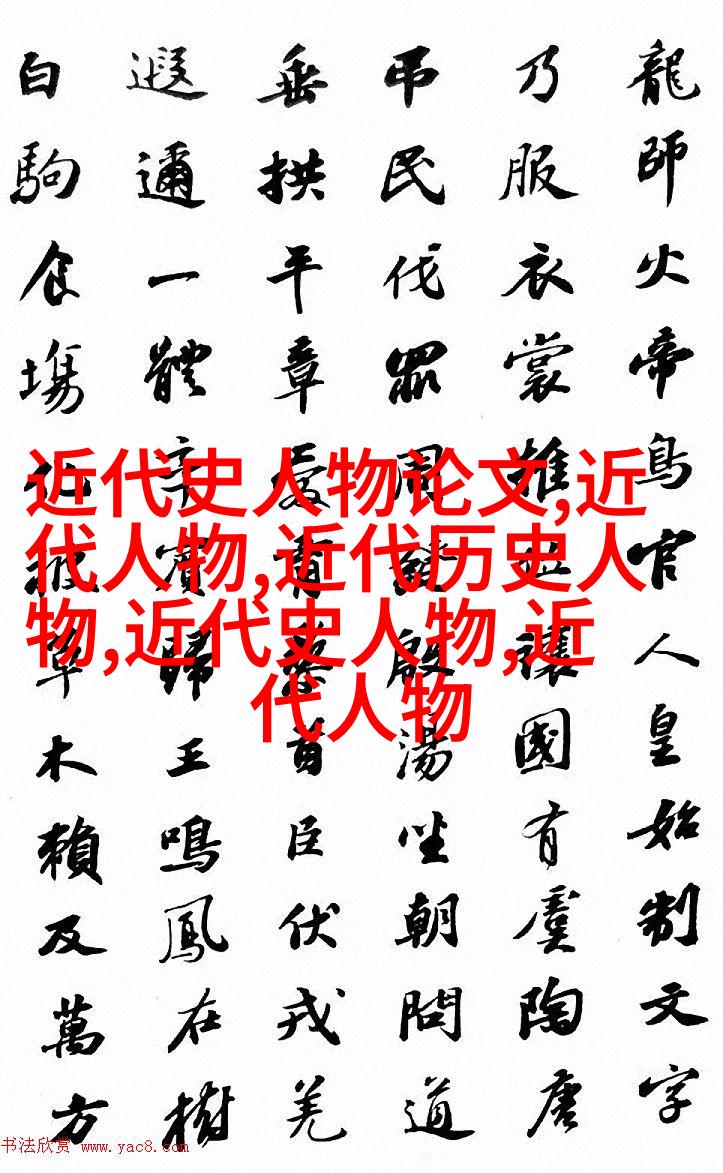 龍師火帝鳥官人皇始制文字
乃服衣裳推位讓國有虞陶唐
吊民伐罪周發殷湯坐朝問道
垂拱平章愛育黎首臣伏戎羌
遐邇一體率賓歸王鳴鳳在樹
白駒食塲化被草木賴及萬方
近代史人物论文,近
代人物,近代历史人
物,近代史人物,近
代人物
书法欣赏 www.yac8.com